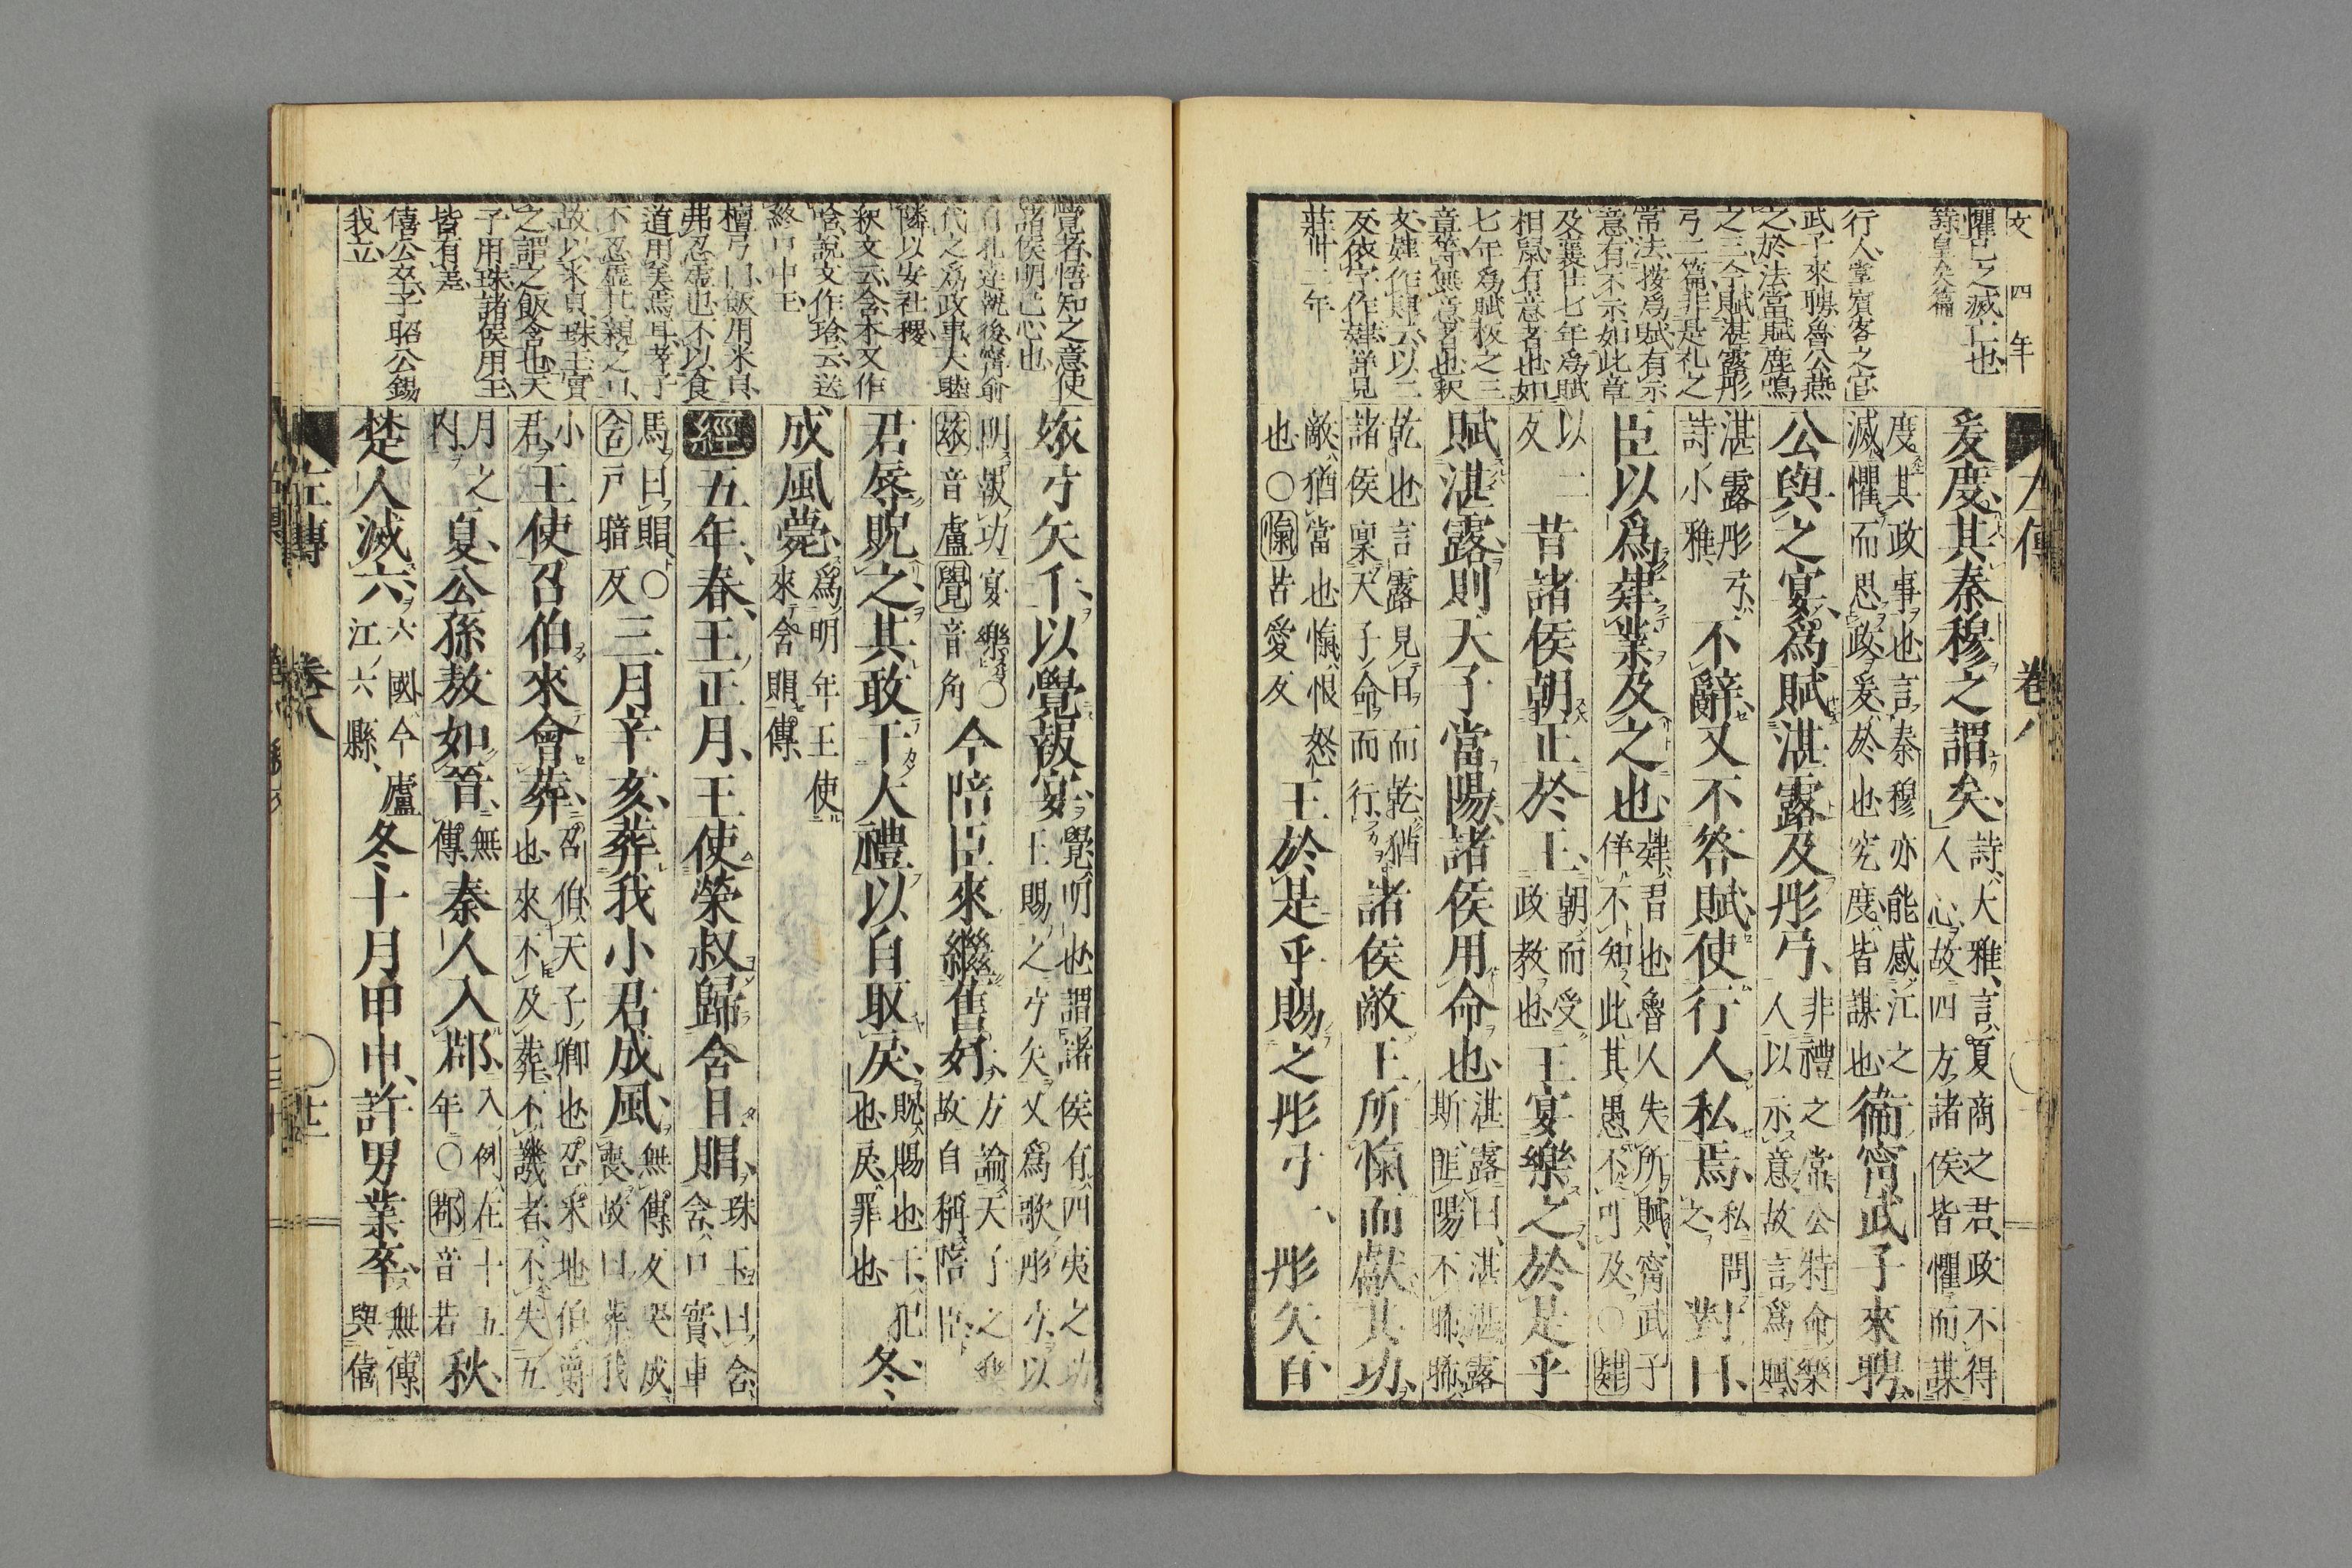 文四年
懼己之滅亡也
詩皇矣篇
行人掌賓客之官
武子來聘魯公燕
之於法當賦鹿鳴
之三今賦湛露彤
弓二篇非是礼之
常法按爲賦有示
意有不示如此章
及襄廿七年爲賦
相鼠有意者也如
七年爲賦板之三
章等無意者也釈
文肄作肆云以二
反依字作肄詳見
莊卅二年
左傳 卷八
爰度其秦穆之謂矣詩大雅言夏商之君政不得人心故四方諸侯皆懼而謀
度其政事也言秦穆亦能感江之滅懼而思政爰於也究度皆謀也衞甯武子來聘
公與之宴爲賦湛露及彤弓非禮之常公特命樂人以示意故言爲賦
湛露彤弓詩小雅不辭又不答賦使行人私焉私問之對曰
臣以爲肄業及之也肄君也魯人失所賦甯武子佯不知此其愚不可及○肄
以二反昔諸侯朝正於王朝而受政教也王宴樂之於是乎
賦湛露則天子當陽諸侯用命也湛露曰湛湛露斯匪陽不晞晞
乾也言露見日而乾猶諸侯稟天子命而行諸侯敵王所愾而獻其功
敵猶當也愾恨怒也○愾苦愛反王於是乎賜之彤弓一彤矢百
覺者悟知之意使
諸侯明己心也
代之爲政事大睦
隣以安社稷
釈文云含本又作
唅說文作琀云送
終口中玉
檀弓曰飯用米貝
弗忍虛也不以食
道用美焉耳孝子
不忍虛其親之口
故以米貝珠玉實
之謂之飯含也天
子用珠諸侯用玉
皆有差
僖公卒子昭公錫
我立
玈弓矢千以覺報宴覺明也謂諸侯有四夷之功王賜之弓矢又爲歌彤弓以
明報功宴樂○玈音盧覺音角今陪臣來繼舊好方論天子之樂故自稱陪臣
君辱貺之其敢干大禮以自取戾貺賜也干犯也戾罪也冬
成風薨爲明年王使來含賵傳
經五年春王正月王使榮叔歸含且賵珠玉曰含含口實車
馬曰賵○含戸暗反三月辛亥葬我小君成風無傳反哭成喪故曰葬我
小君王使召伯來會葬召伯天子卿也召采地伯爵也來不及葬不譏者不失五
月之内夏公孫敖如晉無傳秦人入鄀入例在十五年○鄀音若秋
楚人滅六六國今廬江六縣冬十月甲申許男業卒無傳與僖
左傳 卷八